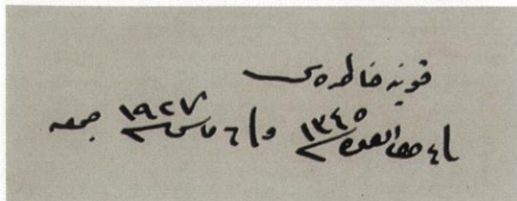 قونيه خاطره‌سى
٤ ذى القعده ١٣٤٥ و ٦ مايس ١٩٢٧ جمعه